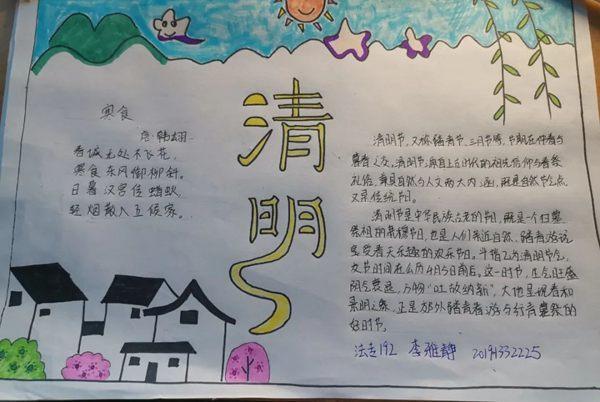 清明
寒食
唐·韩翃
春城无处不飞花,
寒食东风御柳斜。
日暮汉宫传蜡烛,
轻烟散入五侯家。
清明节,又称踏青节、三月节等,节期在仲春与
暮春之交。清明节,源自上古时代的祖先信仰与春祭
礼俗,兼具自然与人文两大内涵,既是自然节气点
又是传统节日。
清明节是中华民族古老的节日,既是一个扫墓
祭祖的肃穆节日,也是人们亲近自然、踏青游玩
享受春天乐趣的欢乐节日。斗指乙为清明节气,
交节时间在公历4月5日前后。这一时节,生气旺盛
阴气衰退,万物“吐故纳新”,大地呈现春和
景明之象,正是郊外踏青春游与行青墓祭的
好时节。
法走192 李雅静 201933 2225